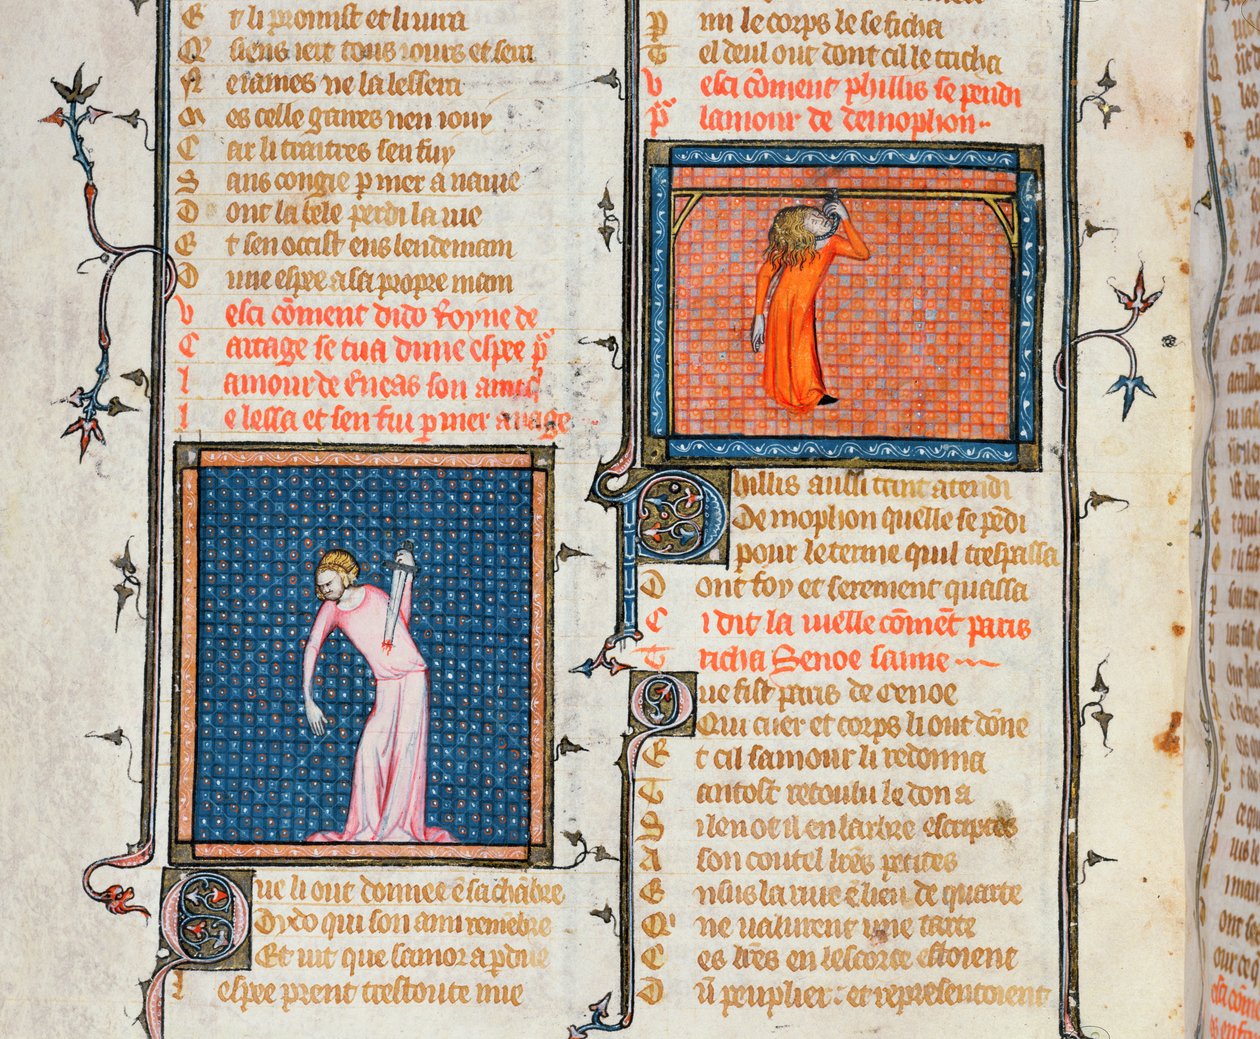 E t li promist et li iura
Q siens iert tous iours et sera
N e iames ne la lessera
M es celle gaires nen ioui
C ar li traitres sen fuy
S ans congie p mer a nauie
D ont la bele perdi la uie
E t sen occist ens lendemain
D une espee a sa propre main
V esci cōment dido Royne de
C artage se tua dune espee pͬ
l amour de Eneas son amis
l e lessa et sen fui p mer a nage
Que li out donnee ē sa chābre
Dydo qui son ami remēbre
Et uit que samor a pdue
l espee prent trestoute nue
P mi le corps le se ficha
T el deul out dont cil le tricha
V esci cōment phillis se pendi
Pͬ lamour de demophon
Phillis aussi tant atendi
Demophon quelle se pēdi
pour le terme quil trespassa
D ont foy et serement quassa
C i dit la uielle cōmēt paris
T richa Senoe samie
Que fist paris de Oenoe
Qui cuer et corps li out dōne
E t cil samour li redonna
T antost retoulu le don a
S i len ot il en larbre escriptes
A son coutel lr̄es petites
E nsus la riue ē lieu de quarte
Q' ne ualurent une tarte
C es lr̄es en lescorce estoient
D ū peuplier : et representoient